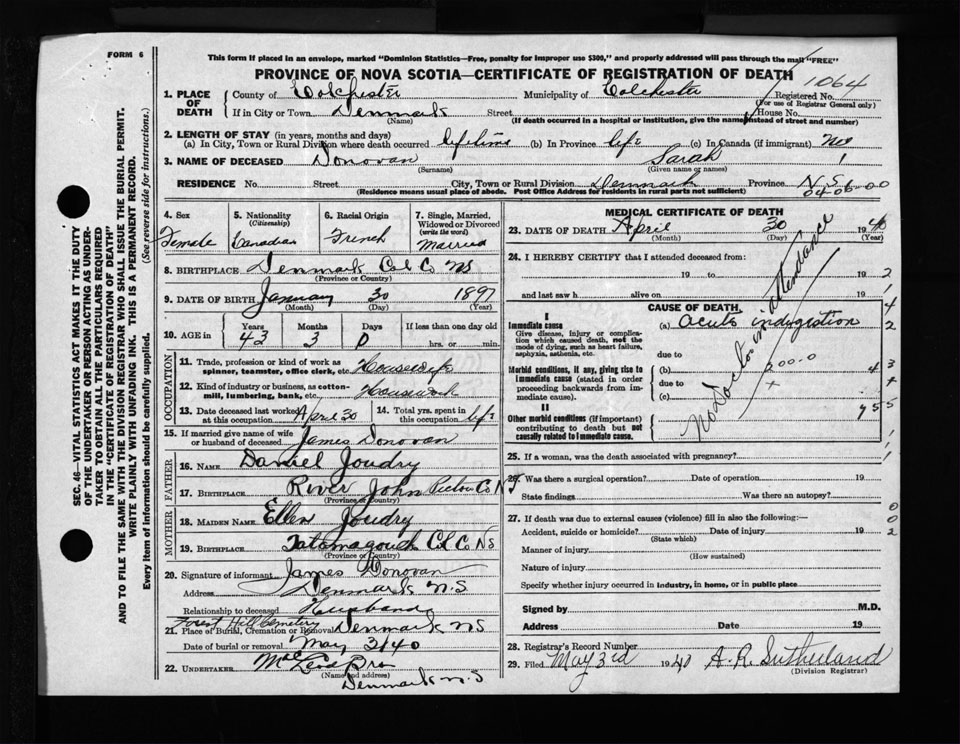 FORM 6
This form if placed in an envelope, marked "Dominion Statistics—Free, penalty for improper use $300," and properly addressed will pass through the mail "FREE"
PROVINCE OF NOVA SCOTIA—CERTIFICATE OF REGISTRATION OF DEATH
1064
1. PLACE OF DEATH County of Colchester Municipality of Colchester Registered No.
(For use of Registrar General only)
If in City or Town Denmark Street House No.
(Name) (If death occurred in a hospital or institution, give the name instead of street and number)
2. LENGTH OF STAY (in years, months and days)
(a) In City, Town or Rural Division where death occurred lifetime (b) In Province life (c) In Canada (if immigrant) no
3. NAME OF DECEASED Donovan Sarah
(Surname) (Given name or names)
RESIDENCE No. Street City, Town or Rural Division Denmark Province N.S.
(Residence means usual place of abode. Post Office address for residents in rural parts not sufficient) 04-06-00
4. Sex
Female
5. Nationality
(Citizenship)
Canadian
6. Racial Origin
French
7. Single, Married, Widowed or Divorced
(write the word)
Married
8. BIRTHPLACE Denmark Col Co NS
(Province or Country)
9. DATE OF BIRTH January 30 1897
(Month) (Day) (Year)
10. AGE in Years Months Days If less than one day old
43 3 0 hrs. or min.
OCCUPATION
11. Trade, profession or kind of work as spinner, teamster, office clerk, etc. Housewife
12. Kind of industry or business, as cotton-mill, lumbering, bank, etc. Housework
13. Date deceased last worked at this occupation April 30
14. Total yrs. spent in this occupation life
15. If married give name of wife or husband of deceased James Donovan
FATHER
16. NAME Daniel Joudry
17. BIRTHPLACE River John Pictou Co NS
(Province or Country)
MOTHER
18. MAIDEN NAME Ellen Joudry
19. BIRTHPLACE Tatamagouch Col Co NS
(Province or Country)
20. Signature of informant James Donovan
Address Denmark N.S.
Relationship to deceased Husband
Forest Hill Cemetery
21. Place of Burial, Cremation or Removal Denmark NS
Date of burial or removal May 3/40
22. UNDERTAKER Bro
(Name and address)
Denmark N.S
MEDICAL CERTIFICATE OF DEATH
23. DATE OF DEATH April 30 1940
(Month) (Day) (Year)
24. I HEREBY CERTIFY that I attended deceased from:
19 to 19
and last saw h alive on 19
No Doctor in attendance
CAUSE OF DEATH
I
Immediate cause
Give disease, injury or complication which caused death, not the mode of dying, such as heart failure, asphyxia, asthenia, etc.
(a) Acute indigestion
due to
Morbid conditions, if any, giving rise to immediate cause (stated in order proceeding backwards from immediate cause).
(b)
due to
(c)
II
Other morbid conditions (if important) contributing to death but not causally related to immediate cause.
25. If a woman, was the death associated with pregnancy?
26. Was there a surgical operation? Date of operation 19
State findings Was there an autopsy?
27. If death was due to external causes (violence) fill in also the following:—
Accident, suicide or homicide? Date of injury 19
(State which)
Manner of injury
(How sustained)
Nature of injury
Specify whether injury occurred in industry, in home, or in public place
Signed by M.D.
Address Date 19
28. Registrar's Record Number
29. Filed May 3rd 1940 A.R. Sutherland
(Division Registrar)
SEC. 46—VITAL STATISTICS ACT MAKES IT THE DUTY
OF THE UNDERTAKER OR PERSON ACTING AS UNDER-
TAKER TO OBTAIN ALL THE PARTICULARS REQUIRED
IN THE "CERTIFICATE OF REGISTRATION OF DEATH"
AND TO FILE THE SAME WITH THE DIVISION REGISTRAR WHO SHALL ISSUE THE BURIAL PERMIT.
WRITE PLAINLY WITH UNFADING INK. THIS IS A PERMANENT RECORD.
Every item of information should be carefully supplied. (See reverse side for instructions.)